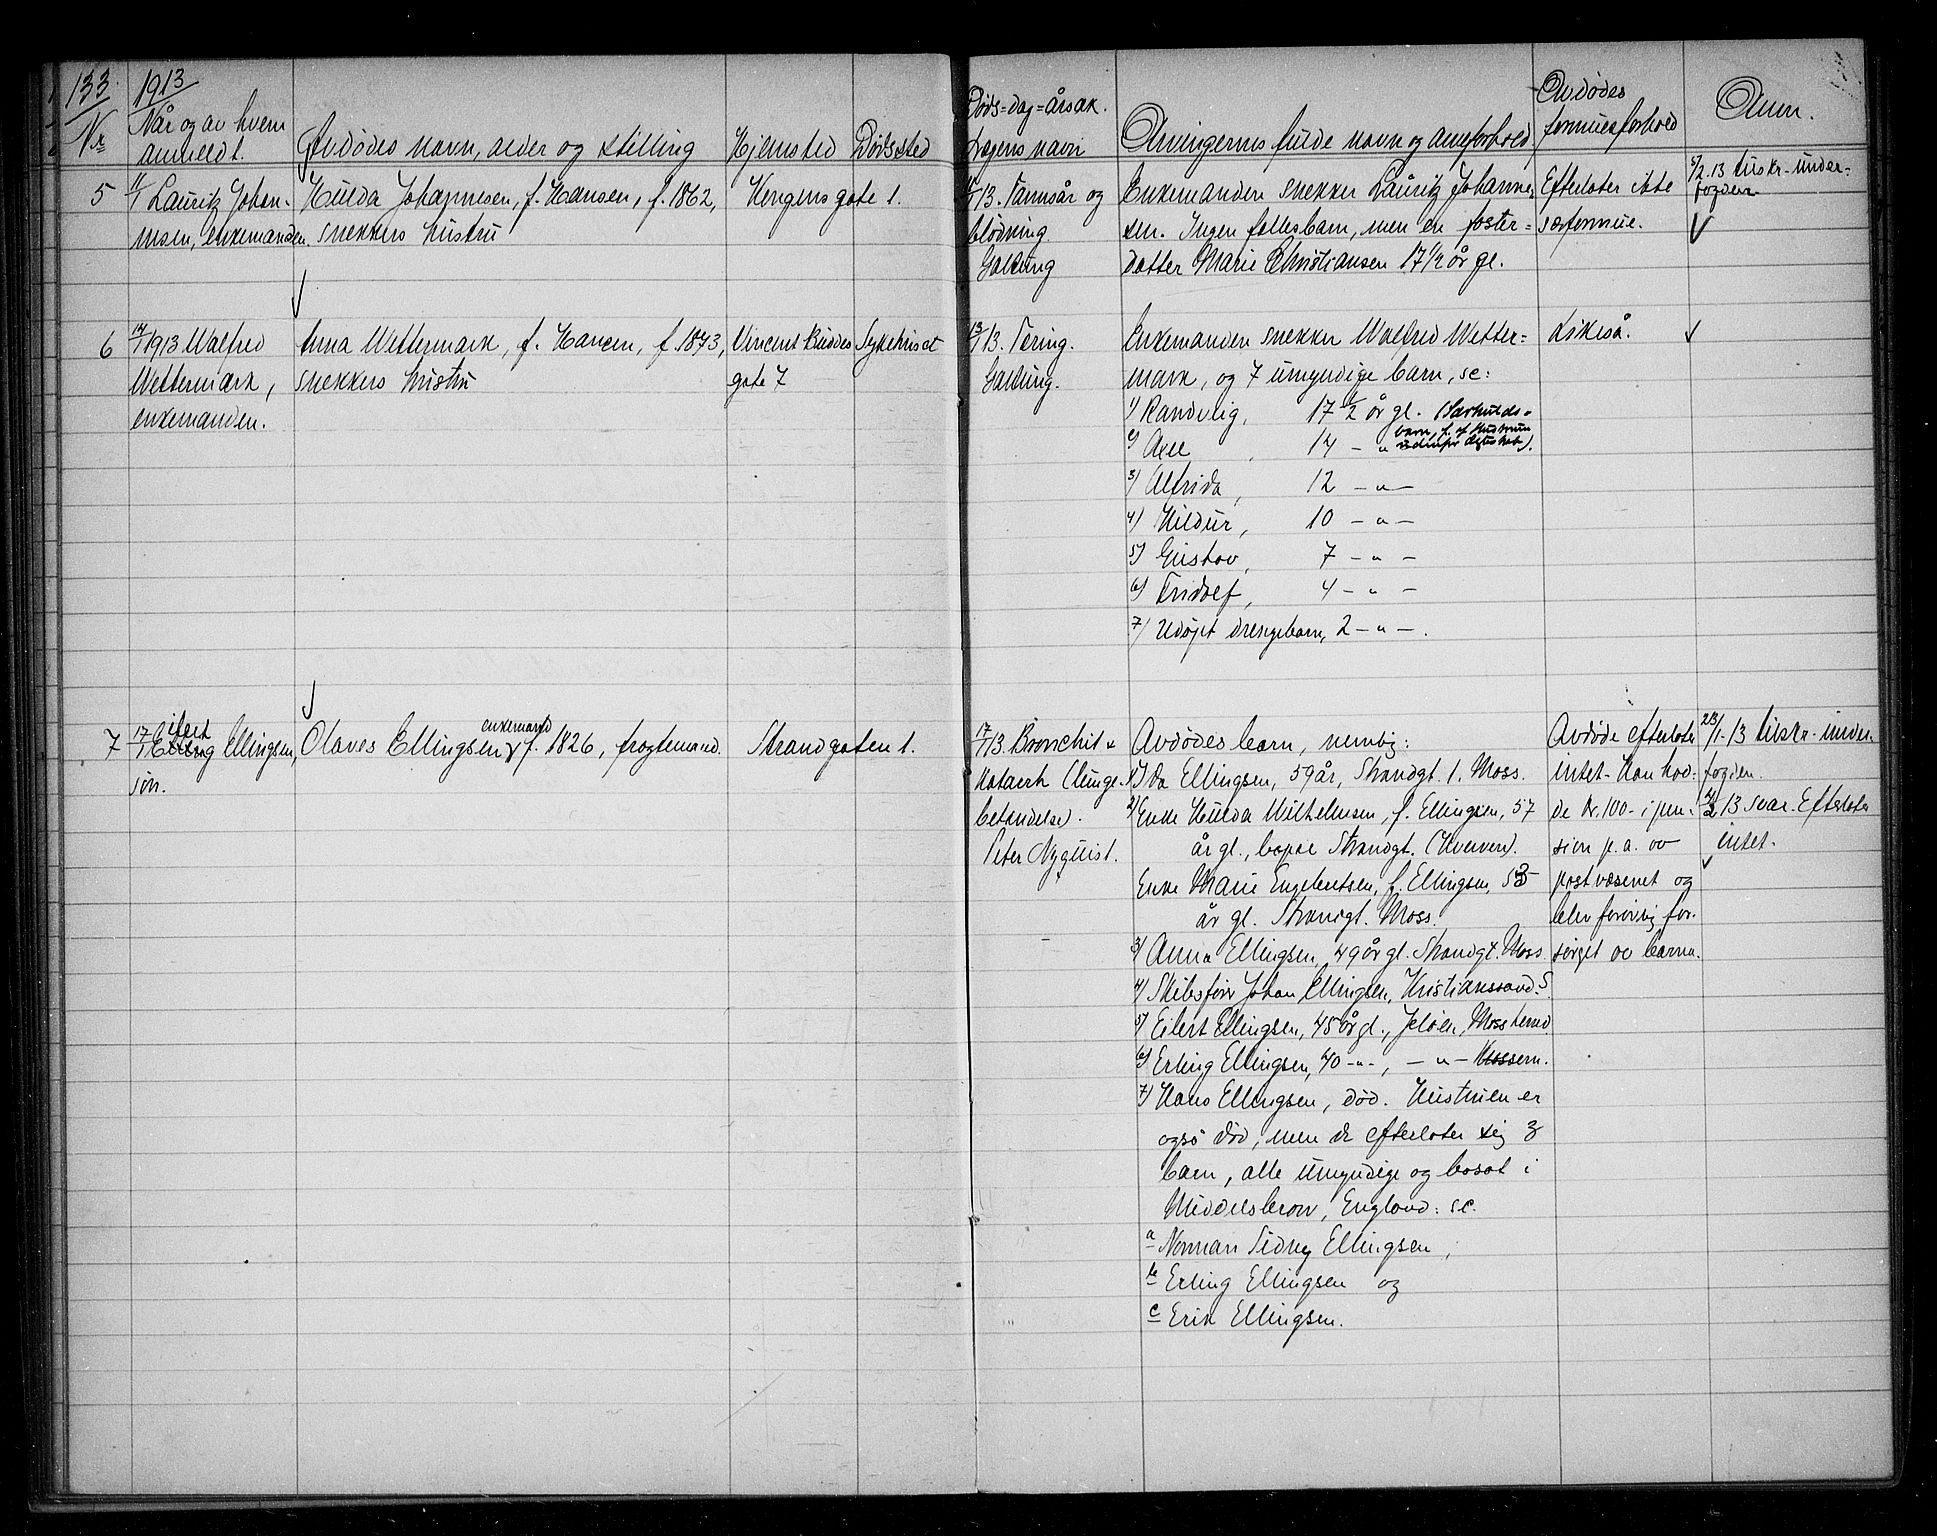 133. 1913
Nr
Når og av hvem
anmeldt.
Avdødes navn, alder og stilling
Hjemsted
Dödssted
Döds=dag=årsak.
Lægens navn
Arvingernes fulde navn og arveforhold
Avdødes
formuesforhold
Anm.
5
11/1 Lauritz Johan-
nesen, enkemanden
Hulda Johannesen, f. Hansen, f. 1862,
snekkers hustru
Kongens gate 1.
11/1 13. Tarmsår og
blödning.
Galtung
Enkemanden snekker Lauritz Johanne-
sen. Ingen fellesbarn, men en foster=
datter Marie Christiansen 17 1/2 år gl.
Efterlater ikke
særformue.
5/2.13 tilskr. under=
fogden
6
14/1 1913 Walfred
Wettermark,
enkemanden.
Anna Wettermark, f. Hansen, f. 1873,
snekkers hustru
Vincent Buddes
gate 7
Sykehuset
13/1 13. Tering.
Galtung.
Enkemanden snekker Walfred Wetter=
mark, og 7 umyndige barn, sc:
1) Randvig, 17 1/2 år gl. (Særkulds-
barn, f. af Hustruen
udenfor Ægteskab).
2) Axel, 14 - " -
3) Alfrida, 12 - " -
4) Hildur, 10 - " -
5) Gustav, 7 - " -
6) Fridolf, 4 - " -
7) Udöpt drengebarn, 2 - " - .
Likeså.
7
17/1 Eilert
Erling Ellingsen,
sön.
Olaves Ellingsen, enkemand f. 1826, fragtemand.
Strandgaten 1.
17/1 13. Bronchit &
Katarrh (lunge-
betændelse).
Peter Nyquist.
Avdödes barn, nemlig:
1) Ida Ellingsen, 59 år, Strandgt. 1. Moss.
2) Enke Hulda Wilhelmsen, f. Ellingsen, 57
år gl., bopæl Strandgt. (Hverven).
Enke Marie Engebretsen, f. Ellingsen, 53
år gl. Strandgt. Moss.
3) Anna Ellingsen, 49 år gl. Strandgt. Moss
4) Skibsförer Johan Ellingsen, Kristianssand. S.
5) Eilert Ellingsen, 45 år gl., Jelöen, Moss herred
6) Erling Ellingsen, 40 - " - , - " -
7) Hans Ellingsen, död. Hustruen er
også död, men de efterlater sig 3
barn, alle umyndige og bosat i
Middelsbrow, England: sc.
a Norman Sidney Ellingsen,
b Erling Ellingsen og
c Erik Ellingsen.
Avdøde efterlater
intet. Han had-
de kr. 100 - i pen-
sion p.a. av
postvæsenet og
blev forövrig for-
sörget av barna.
23/1-13 tilskr. under-
fogden.
4/2 13 svar. Efterlater
intet.